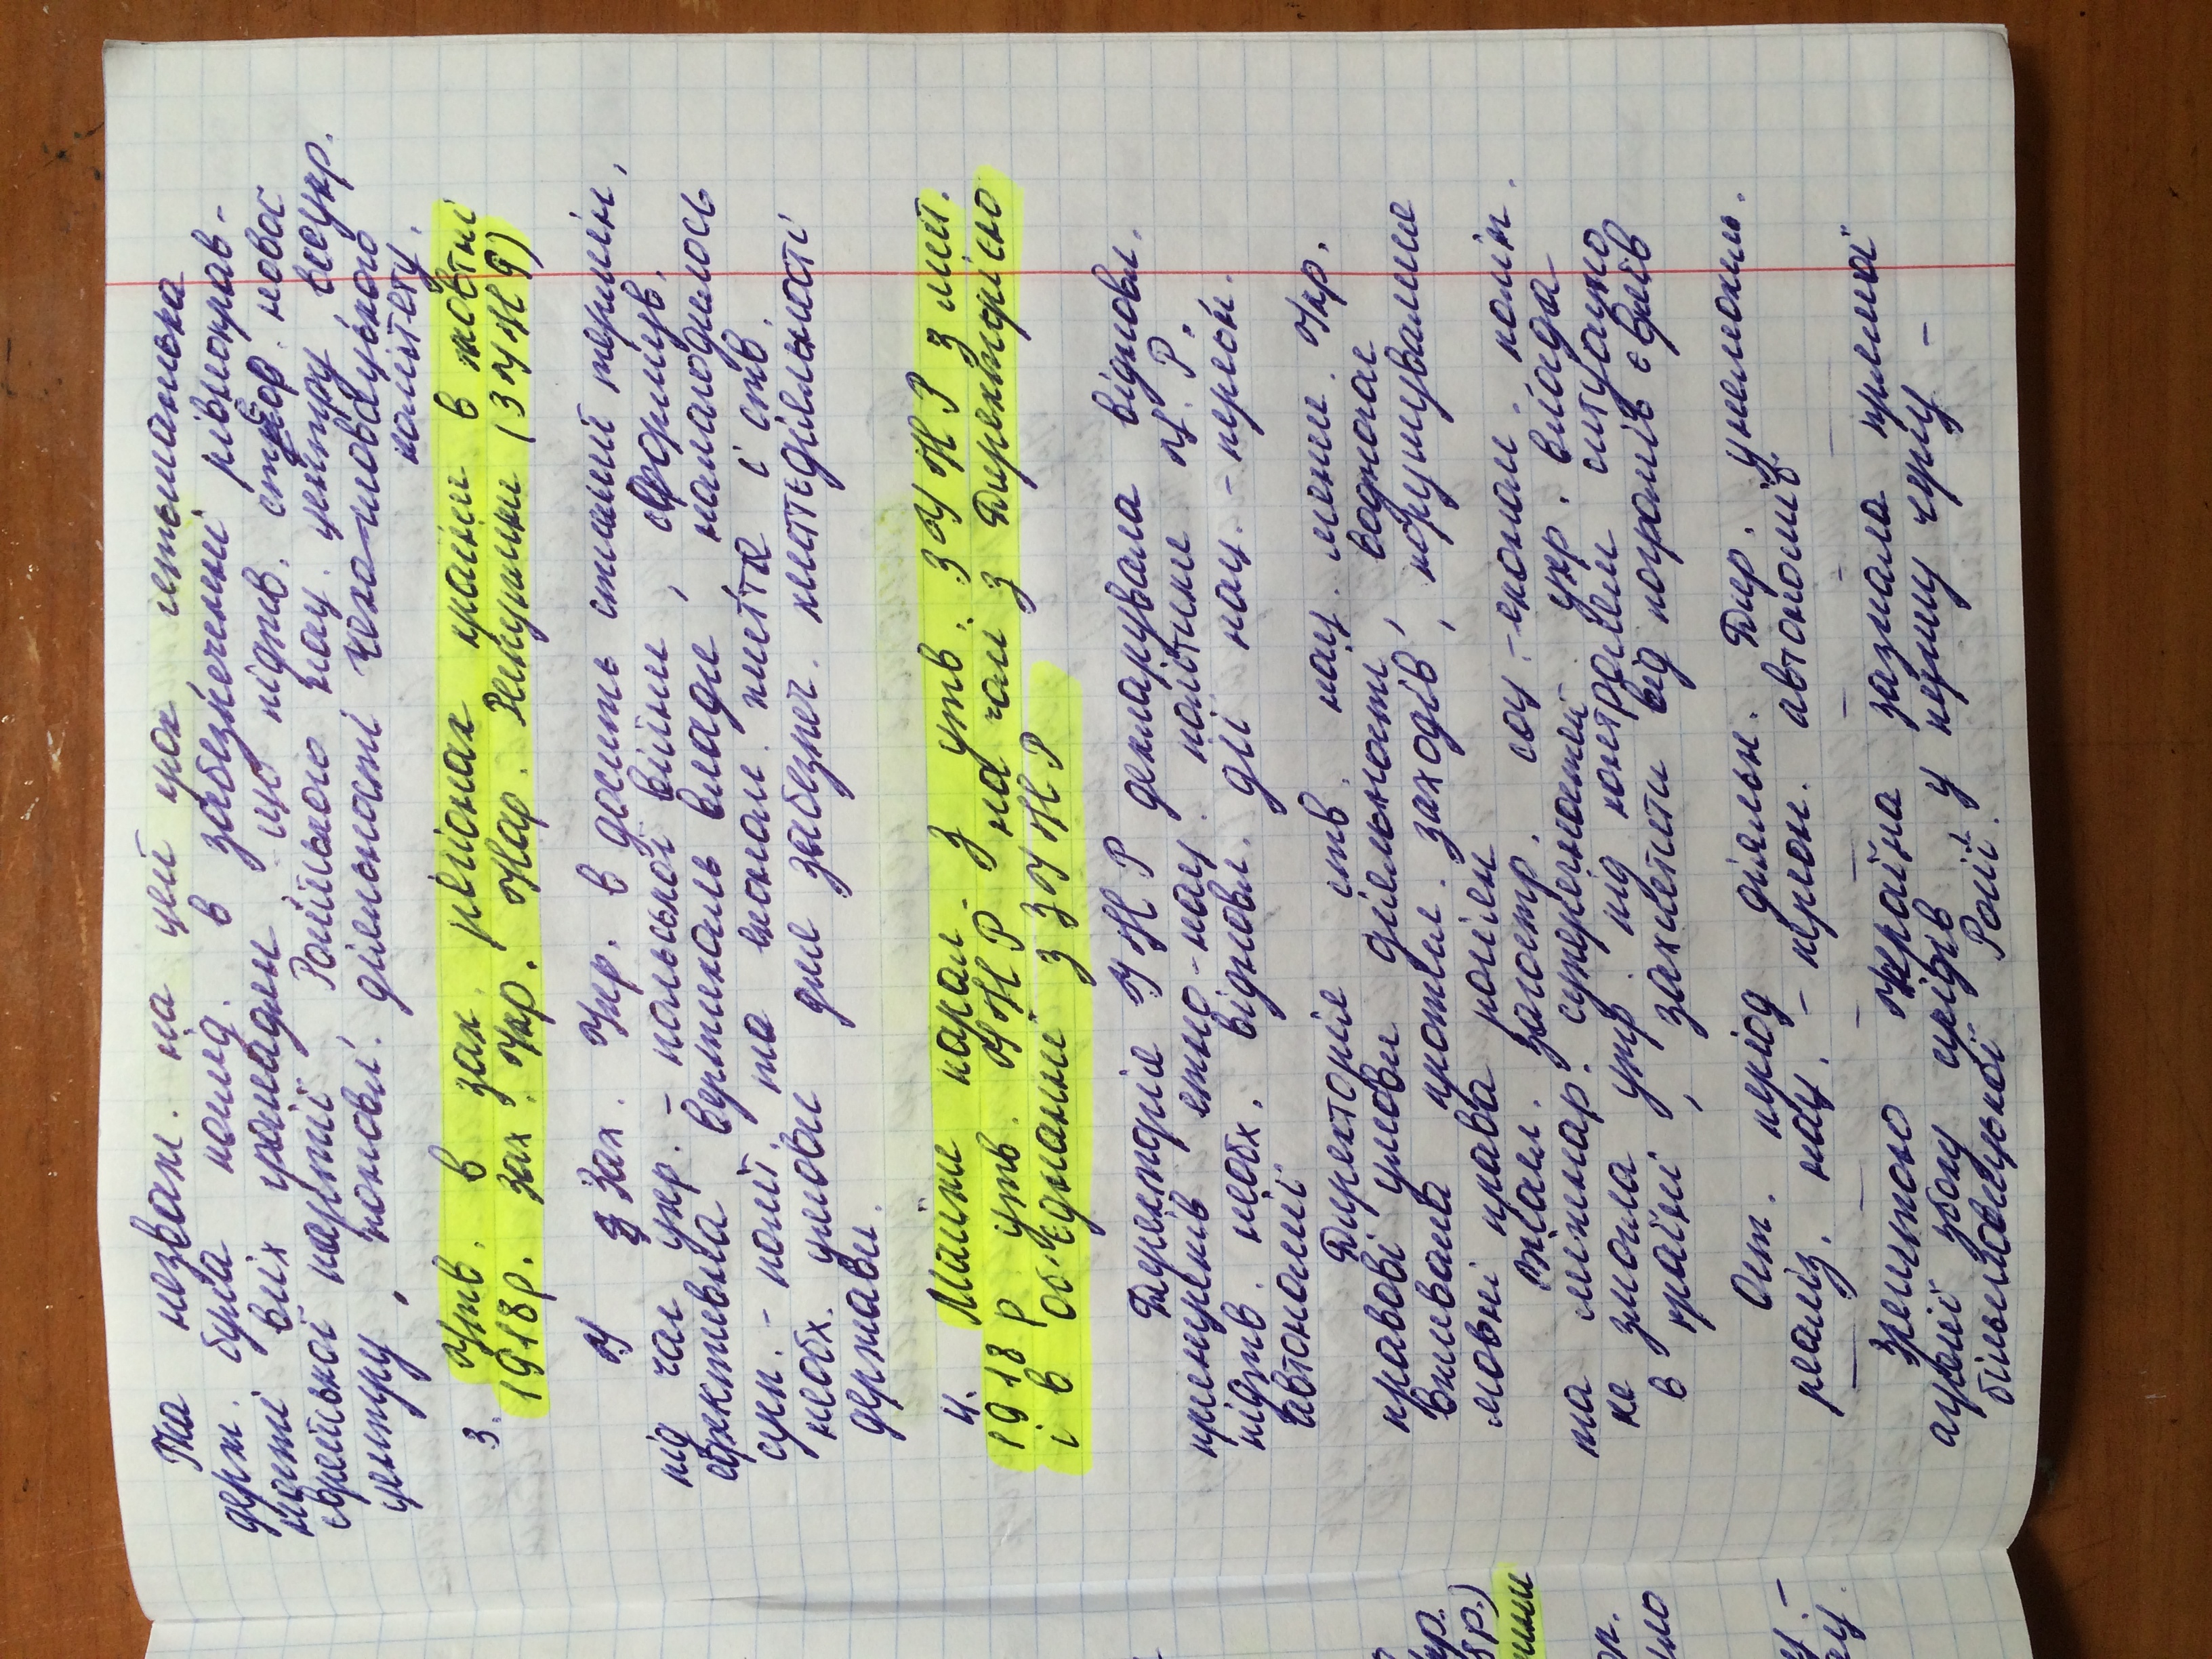 Та незваж. на цей крок, гетьманська
держ. була послід. в забезпеченні рівноправ-
ності всіх громадян, що підтв. створ. нової
єврейської партії, Російського нац. центру, всеукр.
центру, поновл. діяльності Чехо-словацького
комітету.
3. Утв. в зах. регіонах країни в жовтні
1918 р. Зах. Укр. Нар. Республіки (ЗУНР)
У Зах. Укр. в досить стислий термін,
під час укр. - польської війни, сформув.
ефективна вертикаль влади, налагодилось
сусп. - політ. та економ. життя і ств.
необх. умови для забезпеч. життєдіяльності
держави.
4. Майже парал. з утв. ЗУНР з лист.
1918 р утв. УНР на чолі з Директорією
і в об'єднанні з ЗУНР
Директорія УНР декларувала відновл.
принципів етно-нац. політики Ц. Р.,
підтв. необх. відновл. дії нац. - персон.
автономії
Директорія ств. нац. менш. Укр.
правові умови діяльності, водночас
вживала протил. заходів, порушувалися
мовні права росіян
загостр. соц. - економ., політ.
та міжнар. суперечностей укр. влада
не змогла утр. під контролем ситуацію
в країні, захистити від погромів євреїв
Ост. період діяльн. Дир. унеможл.
реаліз. нац. - персон. автономії
Зрештою Україна зазнала прямої
агресії збоку сусідів, у першу чергу -
більшовицької Росії.
кр.
8р.)
ор.